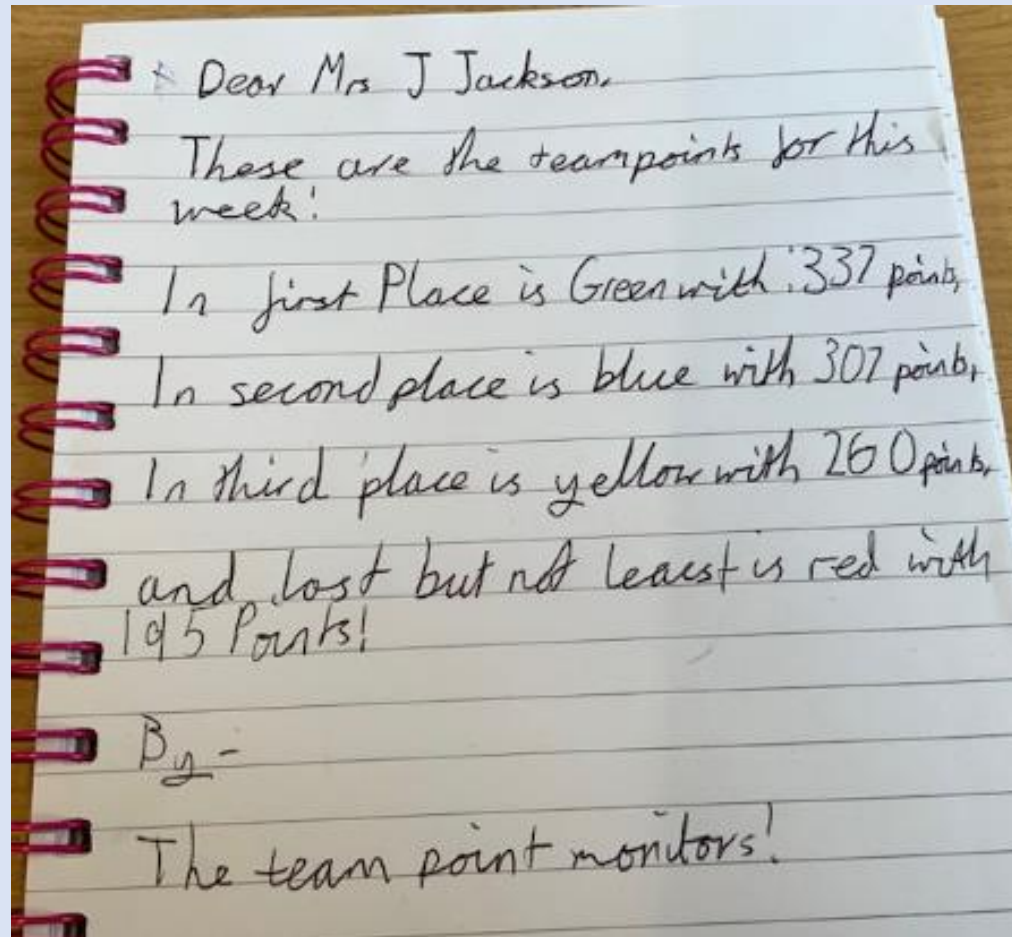 Dear Mrs J Jackson.
These are the teampoints for this
week!
In first Place is Green with :337 points,
In second place is blue with 307 points,
In third place is yellow with 260 points,
and last but not least is red with
195 Points!
By -
The team point monitors!